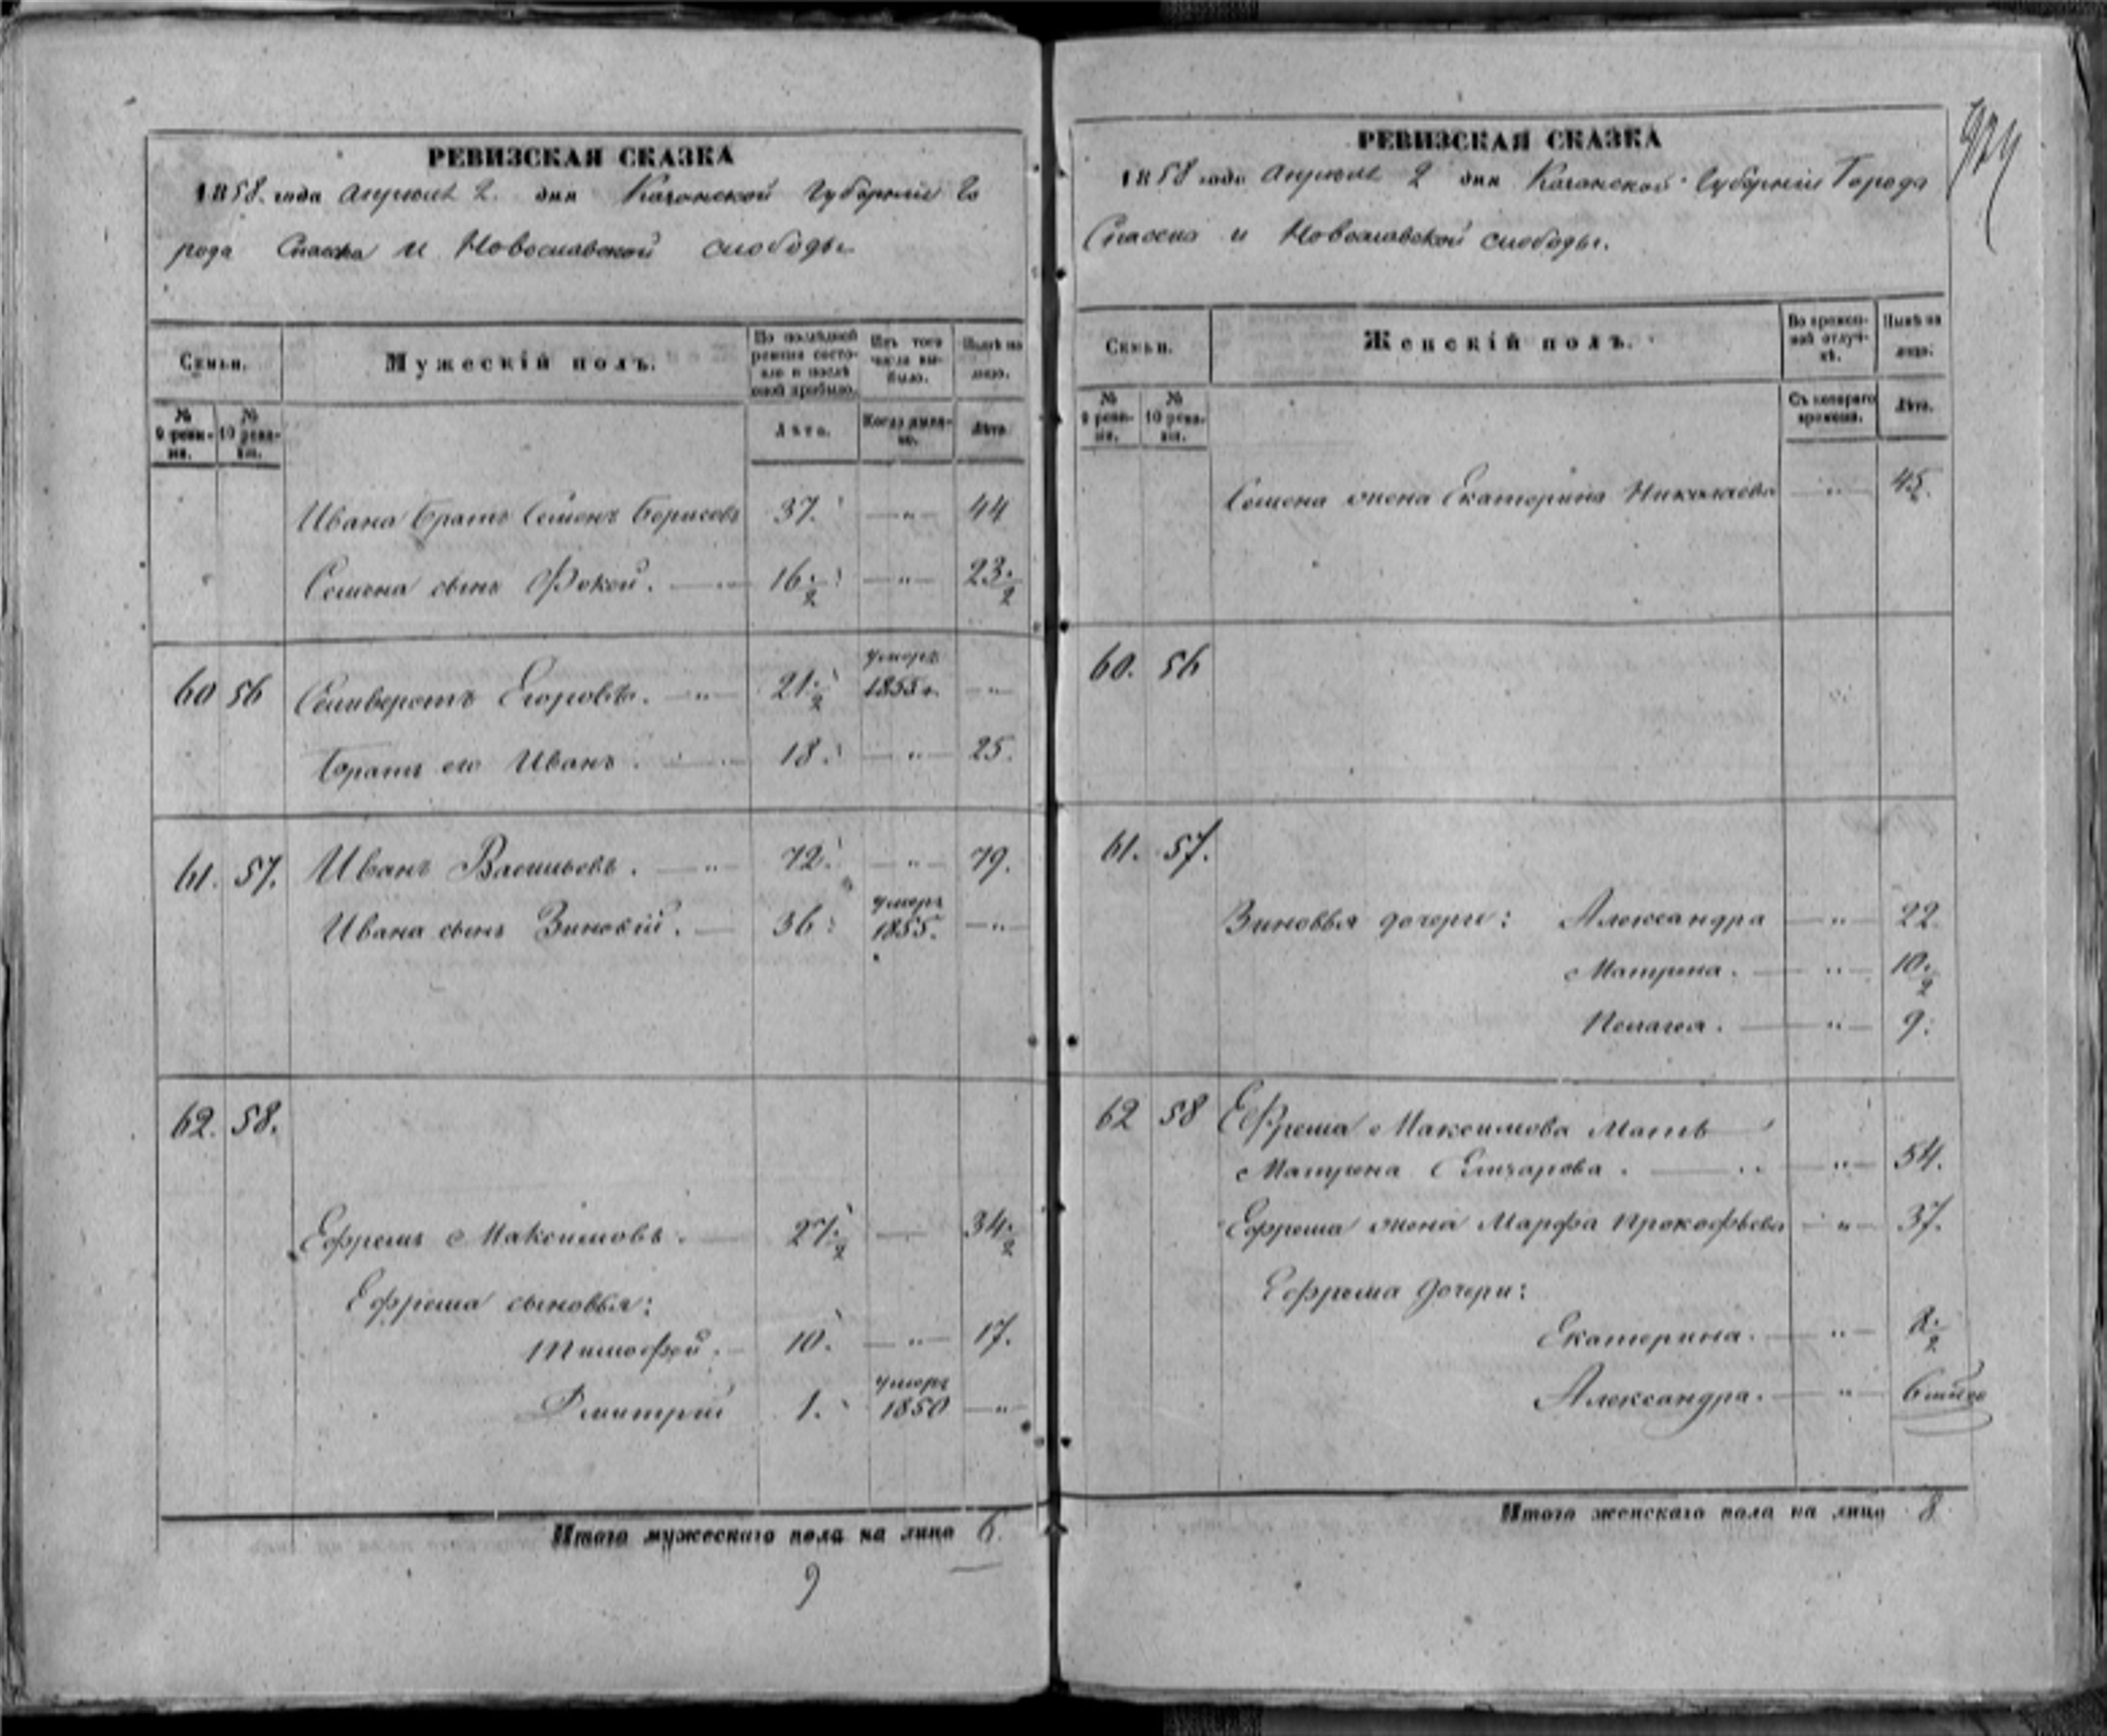 РЕВИЗСКАЯ СКАЗКА
1858. года Апреля 2. дня Казанской Губернии Го
рода Спасска и Новославской слободы
Семьи.
Мужескій полъ.
По послѣдней ревизіи состояло и послѣ оной прибыло.
Изъ того числа выбыло.
Нынѣ на лицо.
№ 9 ревизіи.
№ 10 ревизіи.
Лѣта.
Когда именно.
Лѣта.
Ивана братъ Семенъ Борисовъ 37. — " — 44
Семена сынъ Фокей. — 16 1/2 — " — 23 1/2
60 56 Селиверстъ Егоровъ. — " — 21 1/2 умеръ 1855 г. — " —
братъ его Иванъ. 18. — " — 25.
61. 57. Иванъ Васильевъ. — " — 72. — " — 79.
Ивана сынъ Зиновій. — 36. умеръ 1855. — " —
62. 58.
Ефремъ Максимовъ. — 27 1/2 — 34 1/2
Ефрема сыновья:
Тимофей. — 10. — " — 17.
Дмитрій 1. умеръ 1850 — " —
Итого мужескаго пола на лицо 6.
9
РЕВИЗСКАЯ СКАЗКА
1858 года Апреля 2 дня Казанской Губерніи Города
Спасска и Новославской слободы.
Семьи.
Женскій полъ.
Во временной отлучкѣ.
Нынѣ на лицо.
№ 9 ревизіи.
№ 10 ревизіи.
Съ котораго времени.
Лѣта.
Семена жена Екатерина Николаева — " — 45.
60. 56
61. 57.
Зиновья дочери: Александра — " — 22.
Матрена. — " — 10 1/2
Пелагея. — " — 9.
62 58 Ефрема Максимова Мать
Матрена Елизарова. — " — 54.
Ефрема жена Марфа Прокофьева — " — 37.
Ефрема дочери:
Екатерина. — " — 8 1/2
Александра. — " —
Итого женскаго пола на лицо 8